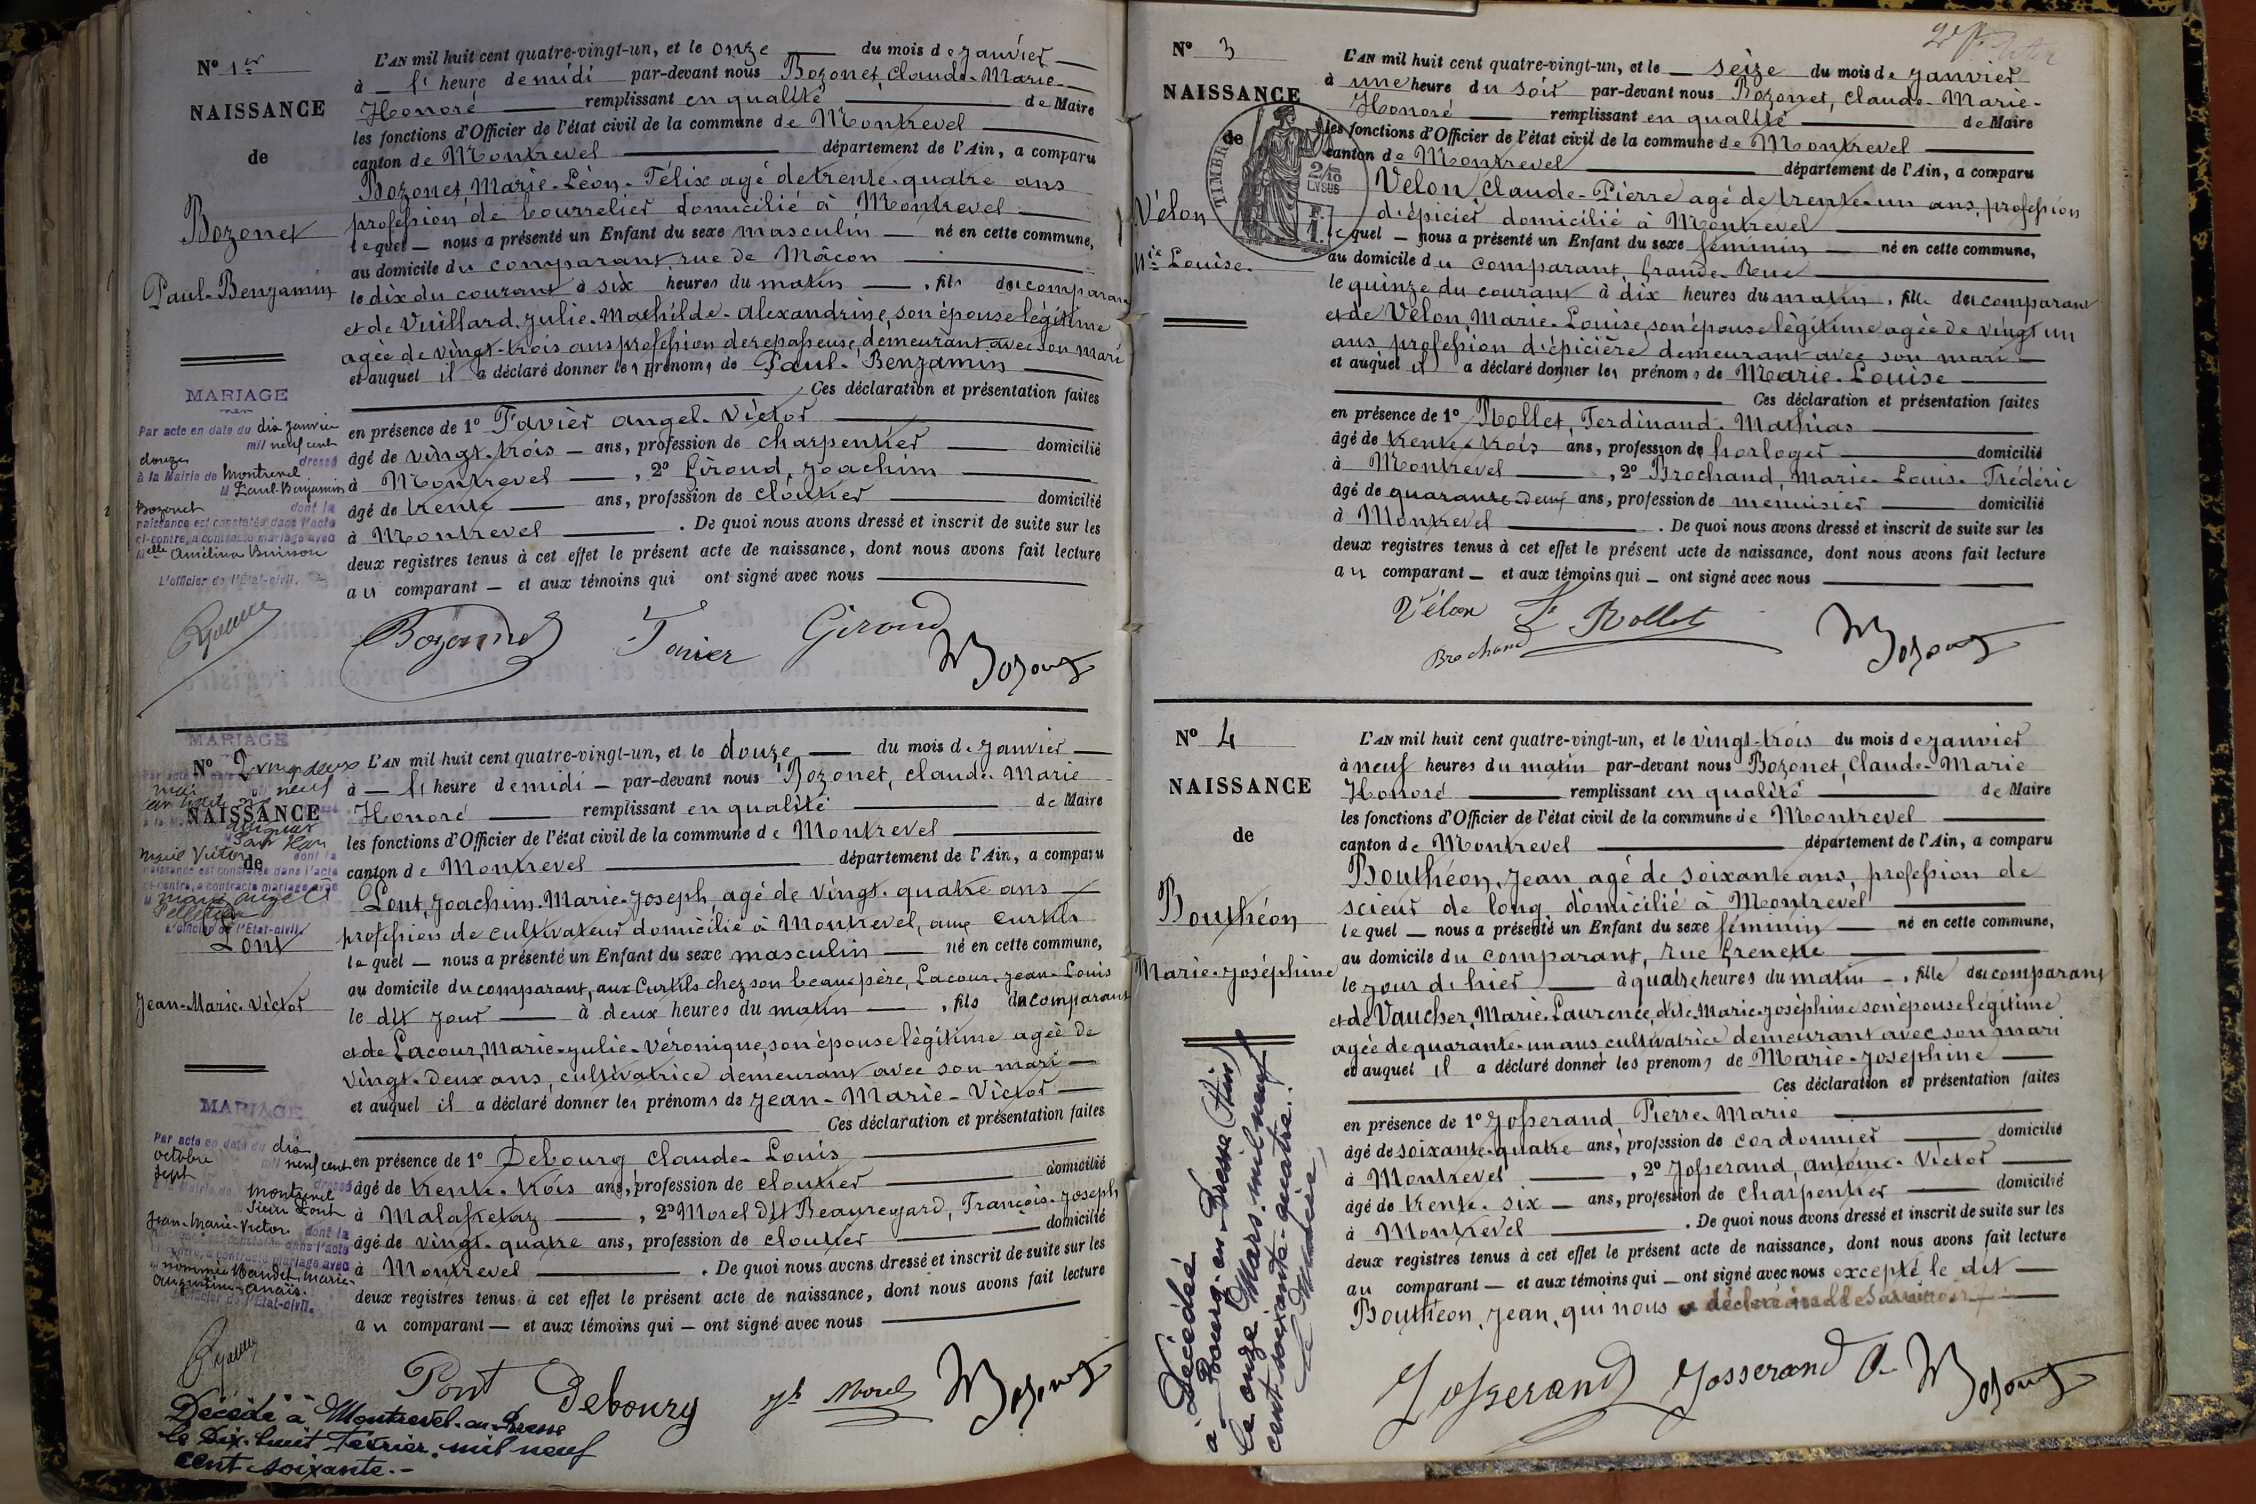 N° 1er
NAISSANCE
de
Bozonet
Paul-Benjamin
L'AN mil huit cent quatre-vingt-un, et le onze du mois de janvier
à l' heure de midi par-devant nous Bozonet, Claude-Marie-
Honoré remplissant en qualité de Maire
les fonctions d'Officier de l'état civil de la commune de Montrevel
canton de Montrevel département de l'Ain, a comparu
Bozonet, Marie-Léon-Félix agé de trente-quatre ans
profession de bourrelier domicilié à Montrevel
lequel nous a présenté un Enfant du sexe masculin né en cette commune,
au domicile du comparant, rue de Mâcon
le dix du courant à six heures du matin, fils du comparant
et de Vuillard, Julie-Mathilde-Alexandrine, son épouse légitime
agée de vingt-trois ans profession de repasseuse, demeurant avec son mari
et auquel il a déclaré donner les prénoms de Paul-Benjamin
Ces déclaration et présentation faites
en présence de 1° Favier Angel-Victor
âgé de vingt-trois ans, profession de charpentier domicilié
à Montrevel, 2° Giroud, Joachim
âgé de trente ans, profession de cloutier domicilié
à Montrevel. De quoi nous avons dressé et inscrit de suite sur les
deux registres tenus à cet effet le présent acte de naissance, dont nous avons fait lecture
au comparant et aux témoins qui ont signé avec nous
MARIAGE
Par acte en date du dix janvier
mil neuf cent
douze dressé
à la Mairie de Montrevel
M Paul-Benjamin
Bozonet dont la
naissance est constatée dans l'acte
ci-contre, a contracté mariage avec
Melle Amélina Buisson
L'officier de l'État-civil.
Bozonet Favier Giroud
Bozonet
N° 2
NAISSANCE
de
Pont
Jean-Marie-Victor
MARIAGE
L'AN mil huit cent quatre-vingt-un, et le douze du mois de janvier
à l' heure de midi par-devant nous Bozonet, Claude-Marie
Honoré remplissant en qualité de Maire
les fonctions d'Officier de l'état civil de la commune de Montrevel
canton de Montrevel département de l'Ain, a comparu
Pont, Joachim-Marie-Joseph agé de vingt-quatre ans
profession de cultivateur domicilié à Montrevel, aux Curtils
lequel nous a présenté un Enfant du sexe masculin né en cette commune,
au domicile du comparant, aux Curtils chez son beau-père, Lacour, Jean-Louis
le dit jour à deux heures du matin, fils du comparant
et de Lacour, Marie-Julie-Véronique, son épouse légitime agée de
vingt-deux ans, cultivatrice demeurant avec son mari
et auquel il a déclaré donner les prénoms de Jean-Marie-Victor
Ces déclaration et présentation faites
en présence de 1° Debourg Claude-Louis
âgé de trente-trois ans, profession de cloutier domicilié
à Malafretaz, 2° Morel dit Beauregard, François-Joseph
âgé de vingt-quatre ans, profession de cloutier domicilié
à Montrevel. De quoi nous avons dressé et inscrit de suite sur les
deux registres tenus à cet effet le présent acte de naissance, dont nous avons fait lecture
au comparant et aux témoins qui ont signé avec nous
MARIAGE
Par acte en date du dix
octobre mil neuf cent
sept dressé
à la Mairie de Montrevel
Sieur Pont
Jean-Marie-Victor dont la
naissance est constatée dans l'acte
ci-contre, a contracté mariage avec
nommée Baudet, Marie-
Augustine-Anaïs.
L'officier de l'État-civil.
Pont Debourg Morel Bozonet
Décédé à Montrevel-en-Bresse
le dix-huit Février mil neuf
cent soixante.-
N° 3
NAISSANCE
de
Vélon
Mie Louise.
TIMBRE
L'AN mil huit cent quatre-vingt-un, et le seize du mois de janvier
à une heure du soir par-devant nous Bozonet, Claude-Marie-
Honoré remplissant en qualité de Maire
les fonctions d'Officier de l'état civil de la commune de Montrevel
canton de Montrevel département de l'Ain, a comparu
Vélon Claude-Pierre agé de trente-un ans, profession
d'épicier domicilié à Montrevel
lequel nous a présenté un Enfant du sexe féminin né en cette commune,
au domicile du comparant, Grande-Rue
le quinze du courant à dix heures du matin, fille du comparant
et de Vélon, Marie-Louise, son épouse légitime agée de vingt un
ans profession d'épicière demeurant avec son mari
et auquel il a déclaré donner les prénoms de Marie-Louise
Ces déclaration et présentation faites
en présence de 1° Rollet, Ferdinand-Mathias
âgé de trente-trois ans, profession de horloger domicilié
à Montrevel, 2° Brochand, Marie-Louis-Frédéric
âgé de quarante-deux ans, profession de menuisier domicilié
à Montrevel. De quoi nous avons dressé et inscrit de suite sur les
deux registres tenus à cet effet le présent acte de naissance, dont nous avons fait lecture
au comparant et aux témoins qui ont signé avec nous
Vélon F. Rollet
Brochand Bozonet
N° 4
NAISSANCE
de
Bouthéon
Marie-Joséphine
L'AN mil huit cent quatre-vingt-un, et le vingt-trois du mois de janvier
à neuf heures du matin par-devant nous Bozonet, Claude-Marie
Honoré remplissant en qualité de Maire
les fonctions d'Officier de l'état civil de la commune de Montrevel
canton de Montrevel département de l'Ain, a comparu
Bouthéon, Jean agé de soixante ans, profession de
scieur de long domicilié à Montrevel
lequel nous a présenté un Enfant du sexe féminin né en cette commune,
au domicile du comparant, rue Grenette
le jour d'hier à quatre heures du matin, fille du comparant
et de Vaucher, Marie-Laurence, dite Marie-Joséphine son épouse légitime
agée de quarante-un ans cultivatrice demeurant avec son mari
et auquel il a déclaré donner les prénoms de Marie-Joséphine
Ces déclaration et présentation faites
en présence de 1° Josserand Pierre-Marie
âgé de soixante-quatre ans, profession de cordonnier domicilié
à Montrevel, 2° Josserand, Antoine-Victor
âgé de trente-six ans, profession de charpentier domicilié
à Montrevel. De quoi nous avons dressé et inscrit de suite sur les
deux registres tenus à cet effet le présent acte de naissance, dont nous avons fait lecture
au comparant et aux témoins qui ont signé avec nous excepté le dit
Bouthéon, Jean, qui nous a déclaré ne le savoir
Josserand Josserand A Bozonet
Décédée
à Bourg-en-Bresse (Ain)
le onze Mars mil neuf
cent soixante-quatre.